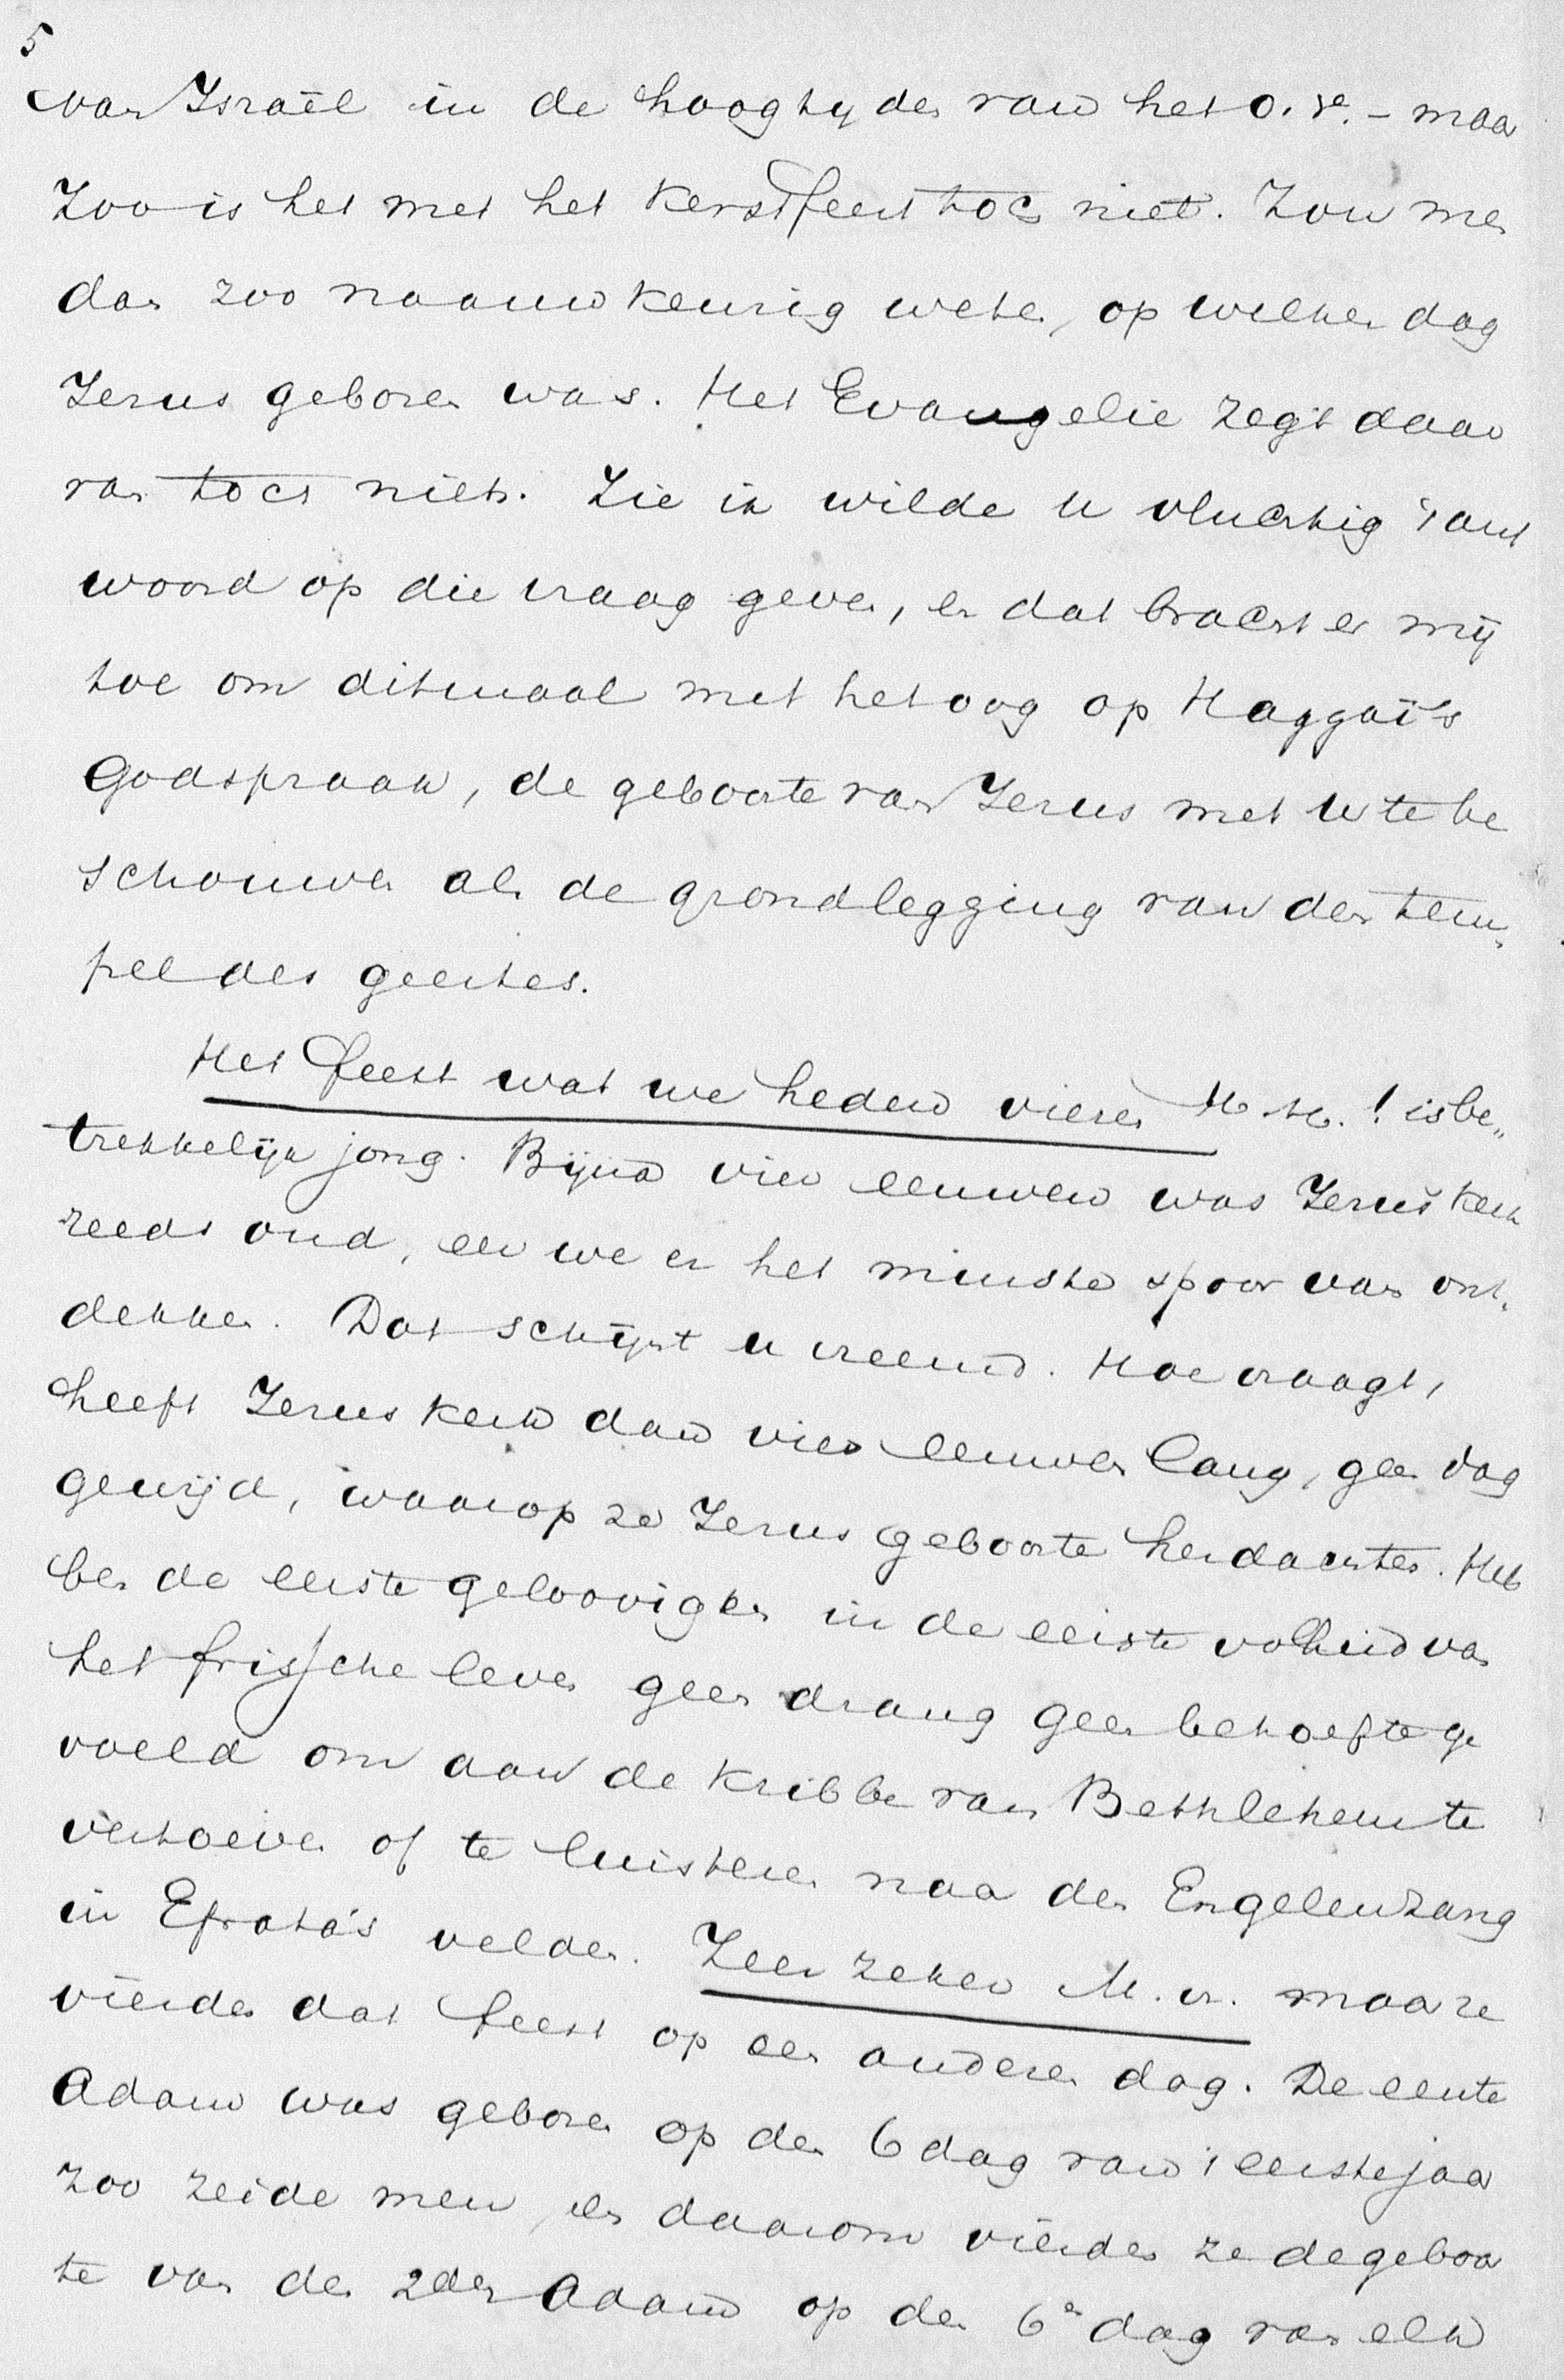 5
van Israël in de hoogtyden van het O. Ve. - maar
Zoo is het met het Kerstfeest toch niet. Zou men
dan zoo naauwkeurig weten, op welken dag
Jezus geboren was. Het Evangelie zegt daar
van toch niets. Zie ik wilde U vluchtig 't ant
woord op die vraag geven, en dat bracht er mij
toe om ditmaal met het oog op Haggaï's
Godspraak, de geboorte van Jezus met U te be
schouwen als de grondlegging van den tem„
pel des geestes.
Het feest wat we heden vieren M. H.! is be„
trekkelijk jong. Bijna vier eeuwen was Jezus kerk
reeds oud, eer we er het minste spoor van ont„
dekken. Dat schijnt u vreemd. Hoe vraagt,
heeft Jezus kerk dan vier eeuwen lang, geen dag
gewijd, waarop ze Jezus geboorte herdachten. Heb
ben de eerste geloovigen in de eerste volheid van
het frissche leven geen drang geen behoefte ge
voeld om aan de kribbe van Bethlehem te
vertoeven of te luisteren naar den Engelenzang
in Efrata's velden. Zeer zeker M. H. maar ze
vierden dat feest op een anderen dag. De eerste
Adam was geboren op den 6 dag van 't eerste jaar
Zoo zeide men, en daarom vierden ze de geboor
te van den 2den Adam op den 6e dag van elk